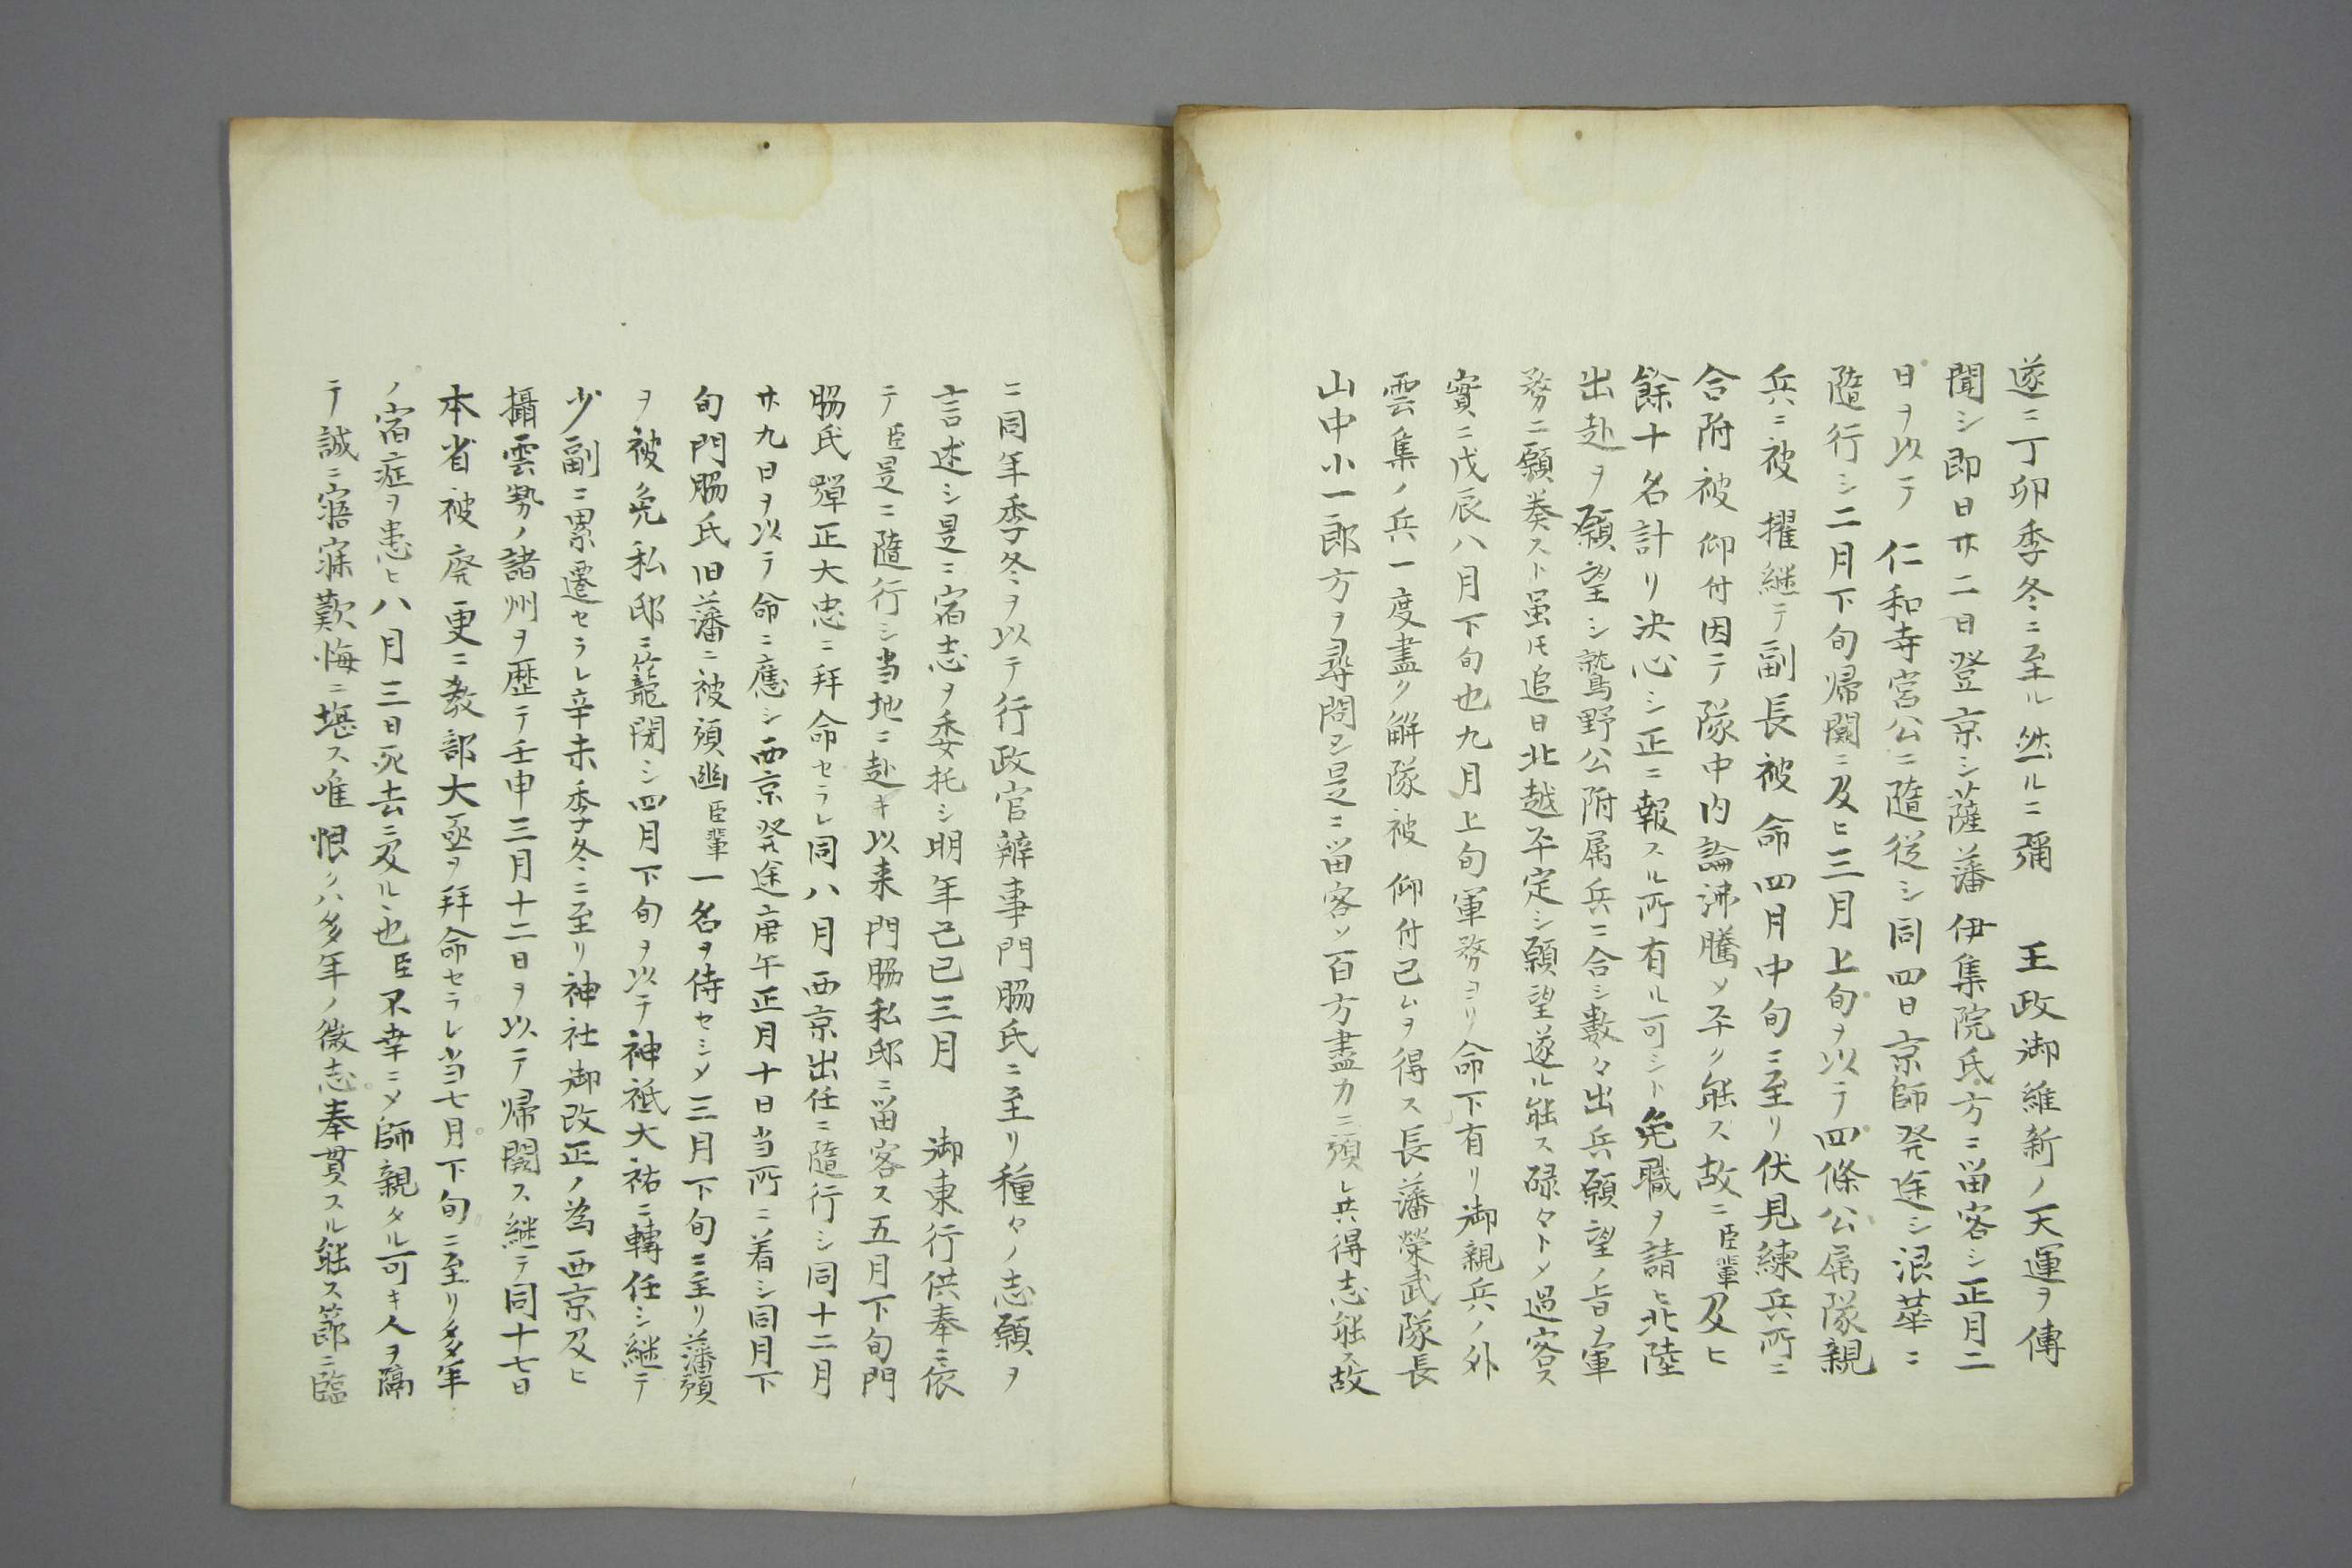 遂ニ丁卯季冬ニ至ル然ルニ彌　王政御維新ノ天運ヲ傳
聞シ即日廿二日登京シ薩藩伊集院氏方ニ畄客シ正月二
日ヲ以テ　仁和寺宮公ニ隨從シ同四日京師発途シ浪華ニ
隨行シ二月下旬帰関ニ及ヒ三月上旬ヲ以テ四條公属隊親
兵ニ被擢継テ副長被命四月中旬ニ至リ伏見練兵所ニ
合附被仰付因テ隊中内論沸騰シ平ク能ス故ニ臣輩及ヒ
餘十名計リ決心シ正ニ報スル所有ル可シト免職ヲ請ヒ北陸
出赴ヲ願望シ鷲野公附属兵ニ合シ數々出兵願望ノ旨ヲ軍
務ニ願奏スト虽モ追日北越平定シ願望遂ル能ス碌々トメ過客ス
實ニ戊辰八月下旬也九月上旬軍務ヨリ命下有リ御親兵ノ外
雲集ノ兵一度盡ク解隊被仰付已ムヲ得ス長藩榮武隊長
山中小一郎方ヲ尋問シ是ニ畄客ソ百方盡力ニ預レ共得志能ス故
ニ同年季冬ヲ以テ行政官辨事門脇氏ニ至リ種々ノ志願ヲ
言述シ是ニ宿志ヲ委托シ明年己巳三月　御東行供奉ニ依
テ臣是ニ隨行シ当地ニ赴キ以来門脇私邸ニ畄客ス五月下旬門
脇氏彈正大忠ニ拜命セラレ同八月西京出任ニ隨行シ同十二月
廿九日ヲ以テ命ニ應シ西京発途庚午正月十日当所ニ着シ同月下
旬門脇氏旧藩ニ被預幽臣輩一名ヲ侍セシメ三月下旬ニ至リ藩預
ヲ被免私邸ニ籠閉シ四月下旬ヲ以テ神祗大祐ニ轉任シ継テ
少副ニ累遷セラレ辛未季冬ニ至リ神社御改正ノ為西京及ヒ
攝雲勢ノ諸州ヲ歴テ壬申三月十二日ヲ以テ帰関ス継テ同十七日
本省被廃更ニ教部大丞ヲ拜命セラレ当七月下旬ニ至リ多年
ノ宿症ヲ患ヒ八月三日死去ニ及ル也臣不幸ニメ師親タル可キ人ヲ隔
テ誠ニ寤寐歎悔ニ堪ス唯恨クハ多年ノ微志奉貫スル能ス節ニ臨